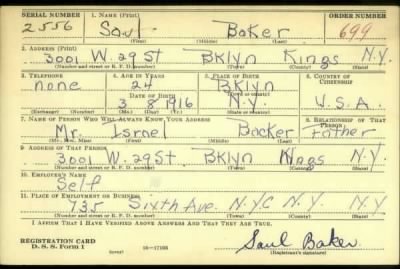 SERIAL NUMBER 1. NAME (Print) ORDER NUMBER
2556 Saul Baker 699
(First) (Middle) (Last)
2. ADDRESS (Print)
3001 W. 29 St Bklyn Kings N.Y.
(Number and street or R. F. D. number) (Town) (County) (State)
3. TELEPHONE 4. AGE IN YEARS 5. PLACE OF BIRTH 6. COUNTRY OF CITIZENSHIP
none 24 Bklyn
(Town or county)
DATE OF BIRTH
3 8 1916 N.Y. U.S.A.
(Exchange) (Number) (Mo.) (Day) (Yr.) (State or country)
7. NAME OF PERSON WHO WILL ALWAYS KNOW YOUR ADDRESS 8. RELATIONSHIP OF THAT PERSON
Mr. Israel Backer Father
(Mr., Mrs., Miss) (First) (Middle) (Last)
9. ADDRESS OF THAT PERSON
3001 W. 29 St. Bklyn Kings N.Y.
(Number and street or R. F. D. number) (Town) (County) (State)
10. EMPLOYER'S NAME
Self
11. PLACE OF EMPLOYMENT OR BUSINESS
735 Sixth Ave. N.Y.C N.Y. N.Y.
(Number and street or R. F. D. number) (Town) (County) (State)
I AFFIRM THAT I HAVE VERIFIED ABOVE ANSWERS AND THAT THEY ARE TRUE.
REGISTRATION CARD
D. S. S. Form 1 (over) 16—17105
Saul Baker
(Registrant's signature)